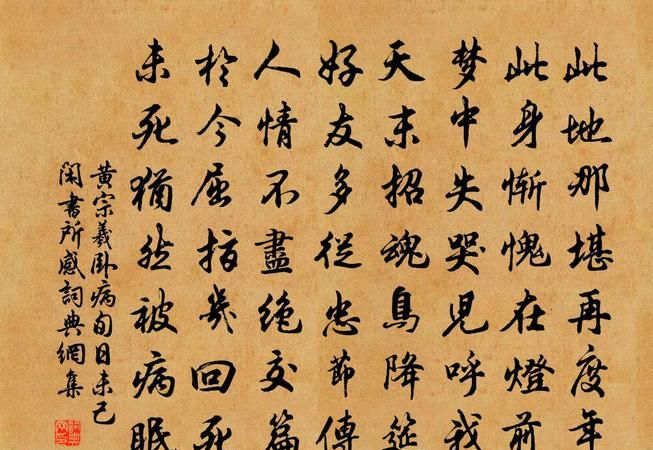 此地那堪再度年
此身慚愧在燈前
梦中失哭兒呼我
天末招魂鳥降筵
好友多從忠節傳
人情不盡絕交篇
於今屈指幾回死
未死猶然被病眠
黄宗羲卧病旬日未已
閑書所感詞典網集